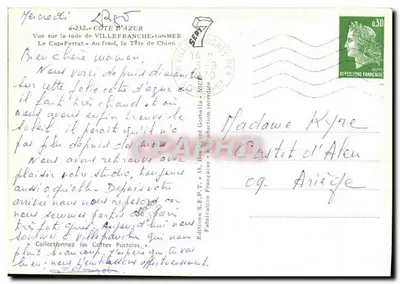 Mercredi
4-232. - COTE D'AZUR
Vue sur la rade de VILLEFRANCHE-sur-MER
Le Cap-Ferrat - Au fond, la Tête de Chien
Bien chère maman,
Nous voici depuis dimanche
sur cette jolie côte d'azur où
il fait très chaud et où
nous avons enfin trouvé le
soleil, il paraît qu'il n'a
pas plu depuis
Nous avons retrouvé avec
plaisir notre studio, toujours
aussi coquet. Depuis notre
arrivée nous nous reposons
nous sommes partis
très fatigués. Aujourd'hui nous
sommes à Villefranche qui nous
plaît beaucoup. J'espère que tu vas
bien, nous t'embrassons affectueusement.
Collectionnez les Cartes Postales
SEPT
Editions S.E.P.T. - 55, NICE
Fabrication Française - Reproduction interdite
0,30
REPUBLIQUE FRANÇAISE
CARTAPHILIA
Madame Kyre
Castet d'Aleu
09. Ariège